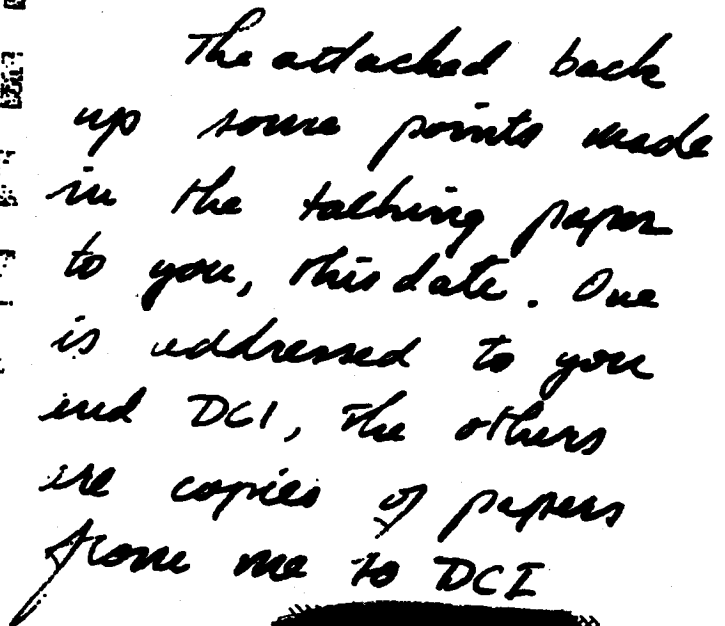 The attached back
up some points made
in the talking paper
to you, this date. One
is addressed to you
and DCI, the others
are copies of papers
from me to DCI